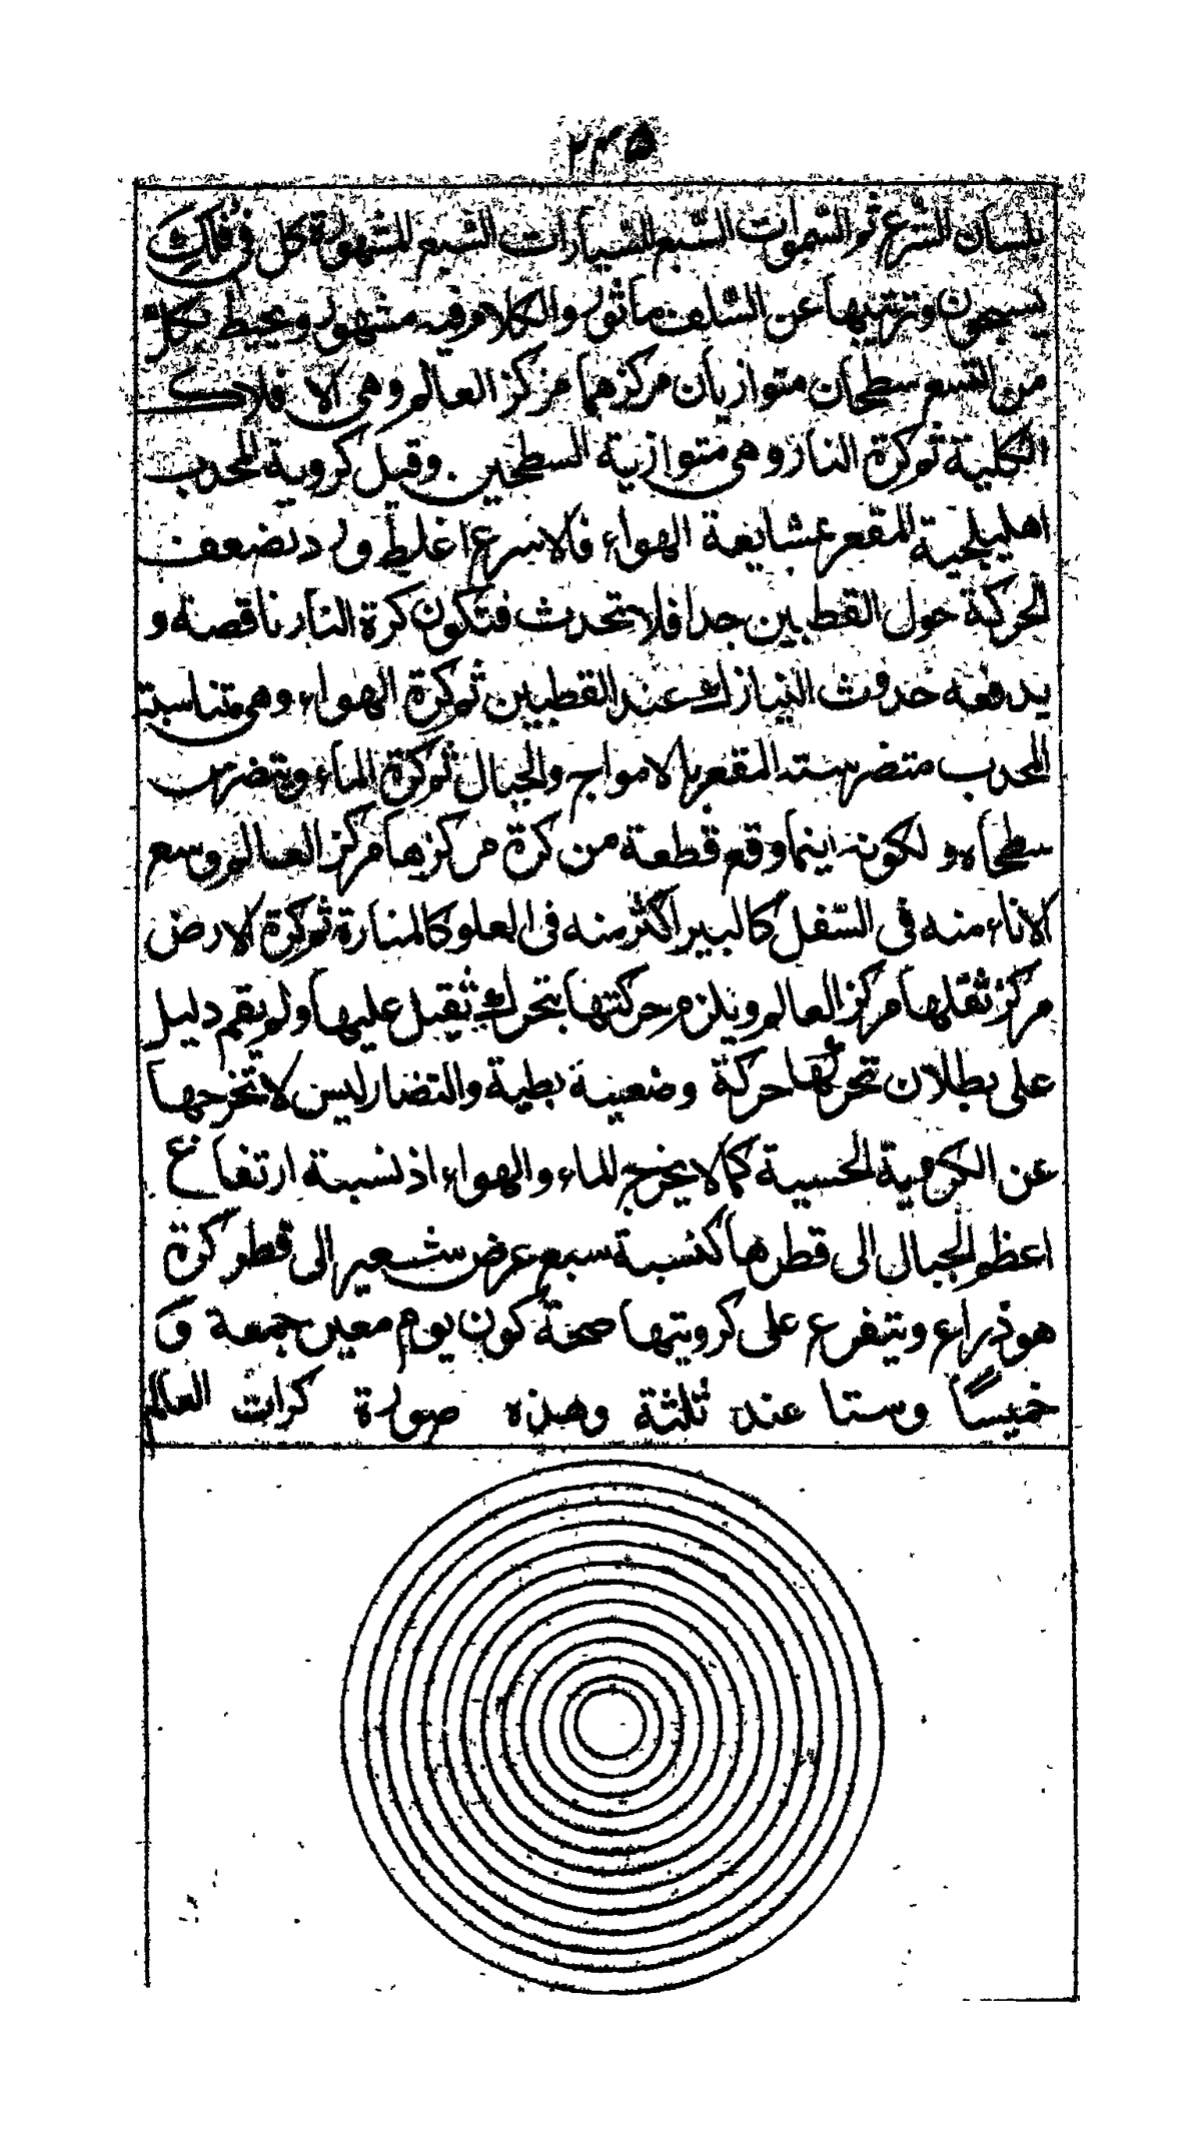 ٢٣٥
بلسان الشرع ثم السموات السبع للسيارات السبع المشهورة كل في فلك
يسبحون وترتيبها عن السلف مأثور والكلام فيه مشهور ومحيط بكل
من التسع سطحان متوازيان مركزهما مركز العالم وهى الافلاك
الكلية ثم كرة النار وهى متوازية السطحين وقيل كروية المحدب
اهليلجية المقعر بمشايعة الهواء فالاسرع اغلظ ورد تضعف
الحركة حول القطبين جدا فلا تحدث فتكون كرة النار ناقصة و
يدفعه حدوث النيازك عند القطبين ثم كرة الهواء وهى متناسبة
المحدب متضرسة المقعر بالامواج والجبال ثم كرة الماء ويتضرس
سطحاه و لكونه اينما وقع قطعة من كرة مركزها مركز العالم وسع
الاناء منه في السفل كالبير اكثر منه في العلو كالمنارة ثم كرة الارض
مركز ثقلها مركز العالم ويلزم حركتها بتحرك ثقيل عليها ولم يقم دليل
على بطلان تحركها حركة وضعية بطية والتضاريس لا تخرجها
عن الكروية الحسية كما لا يخرج الماء والهواء اذ نسبة ارتفاع
اعظم الجبال الى قطرها كنسبة سبع عرض شعير الى قطر كرة
هو ذراع ويتفرع على كرويتها صحة كون يوم معين جمعة و
خميسا وستا عند ثلثة وهذه صورة كرات العالم